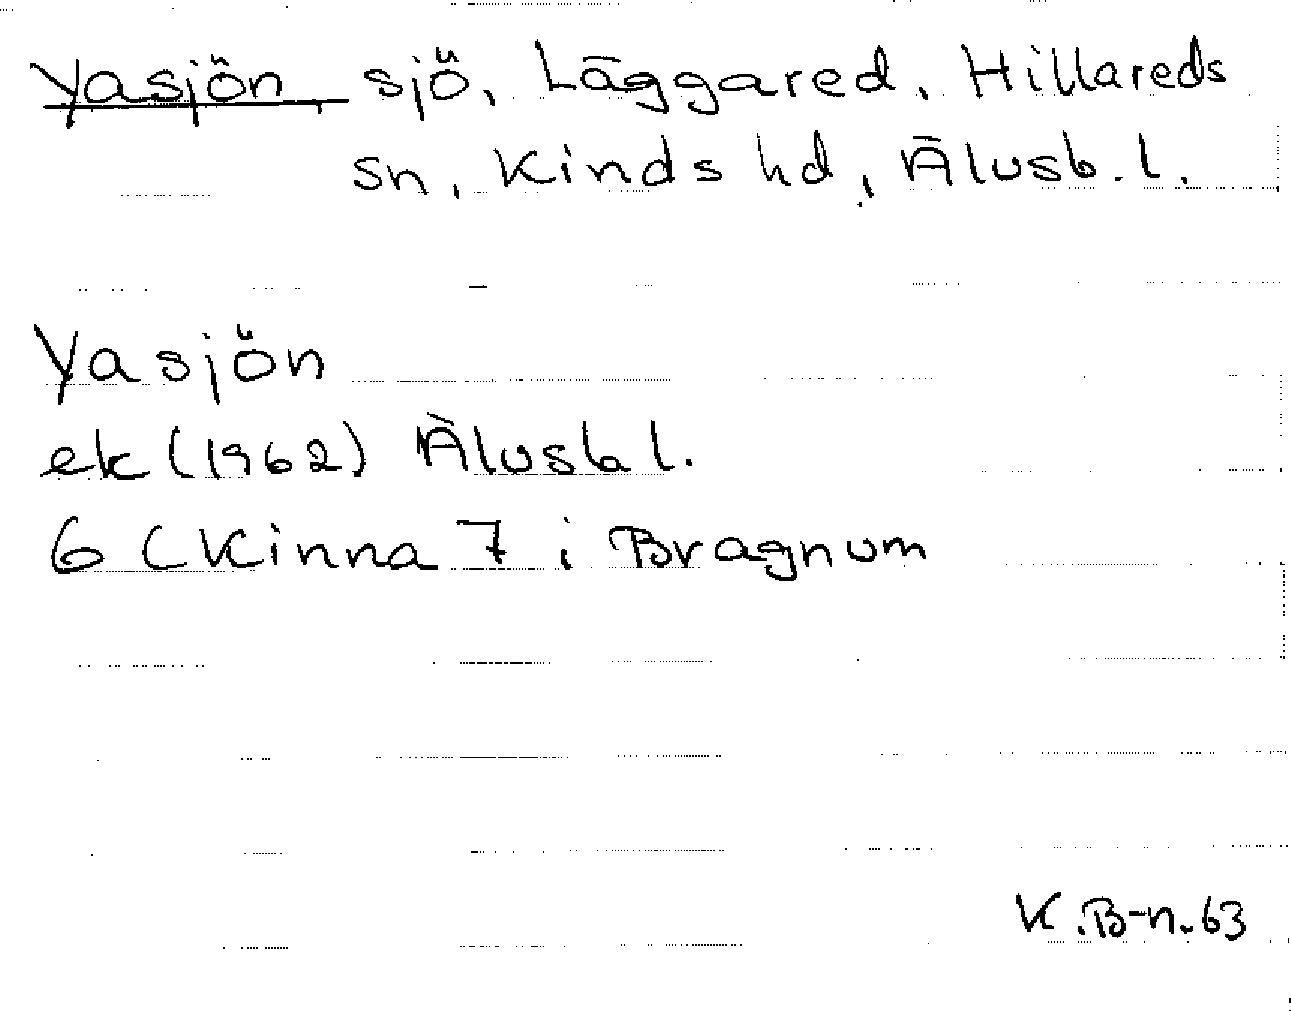 Yasjön, sjö, Läggared, Hillareds
sn, Kinds hd, Älvsb. l.
Yasjön
ek (1962) Älvsb l.
6 (Kinna 7 i Bragnum
K.B-n.63